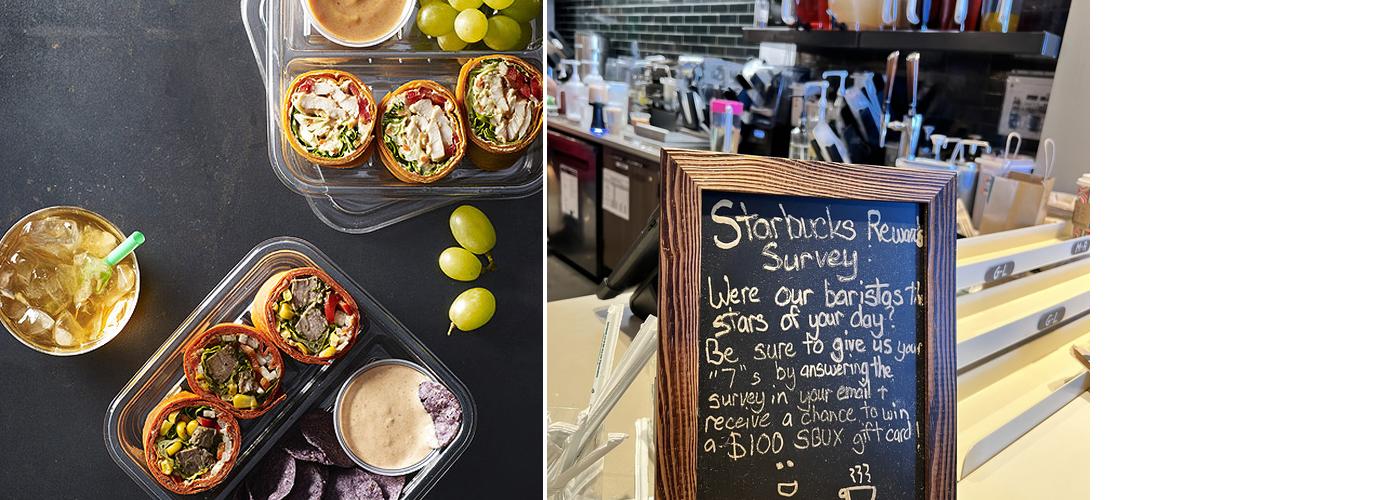 Starbucks Rewards
Survey
Were our baristas the
stars of your day?
Be sure to give us your
"7"s by answering the
survey in your email +
receive a chance to win
a $100 SBUX gift card!
G-L
G-L